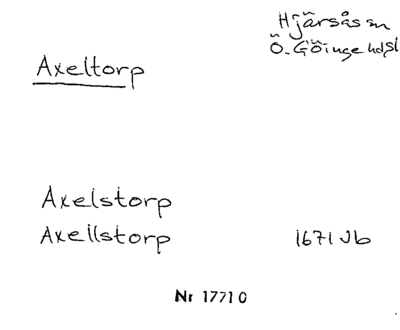 Hjärsås sn
Ö. Göinge hd, Sk
Axeltorp
Axelstorp
Axellstorp 1671 Jb
Nr 17710